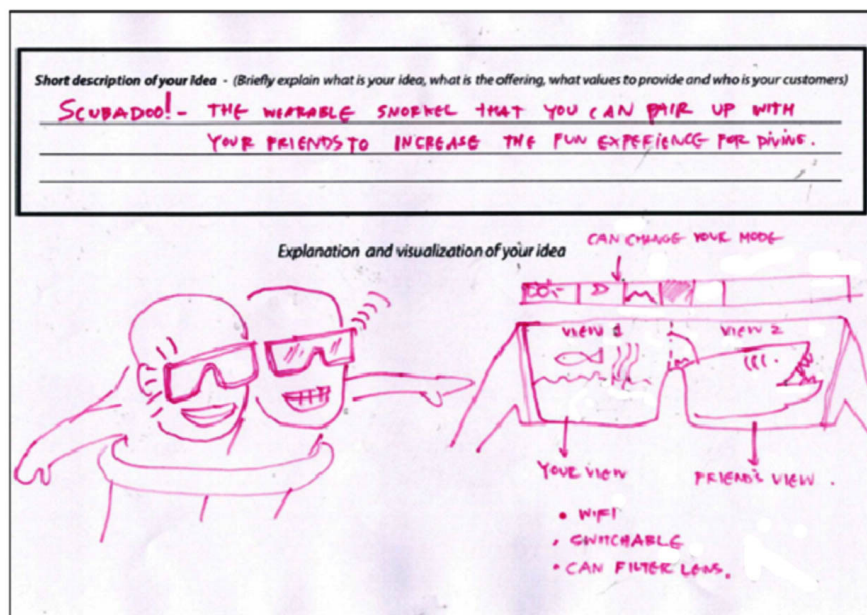 Short description of your Idea - (Briefly explain what is your idea, what is the offering, what values to provide and who is your customers)
SCUBADOO! - THE WEARABLE SNORKEL THAT YOU CAN PAIR UP WITH
YOUR FRIENDS TO INCREASE THE FUN EXPERIENCE FOR DIVING.
Explanation and visualization of your idea
CAN CHANGE YOUR MODE
VIEW 1
VIEW 2
YOUR VIEW
FRIEND'S VIEW.
• WIFI
• SWITCHABLE
• CAN FILTER LENS.